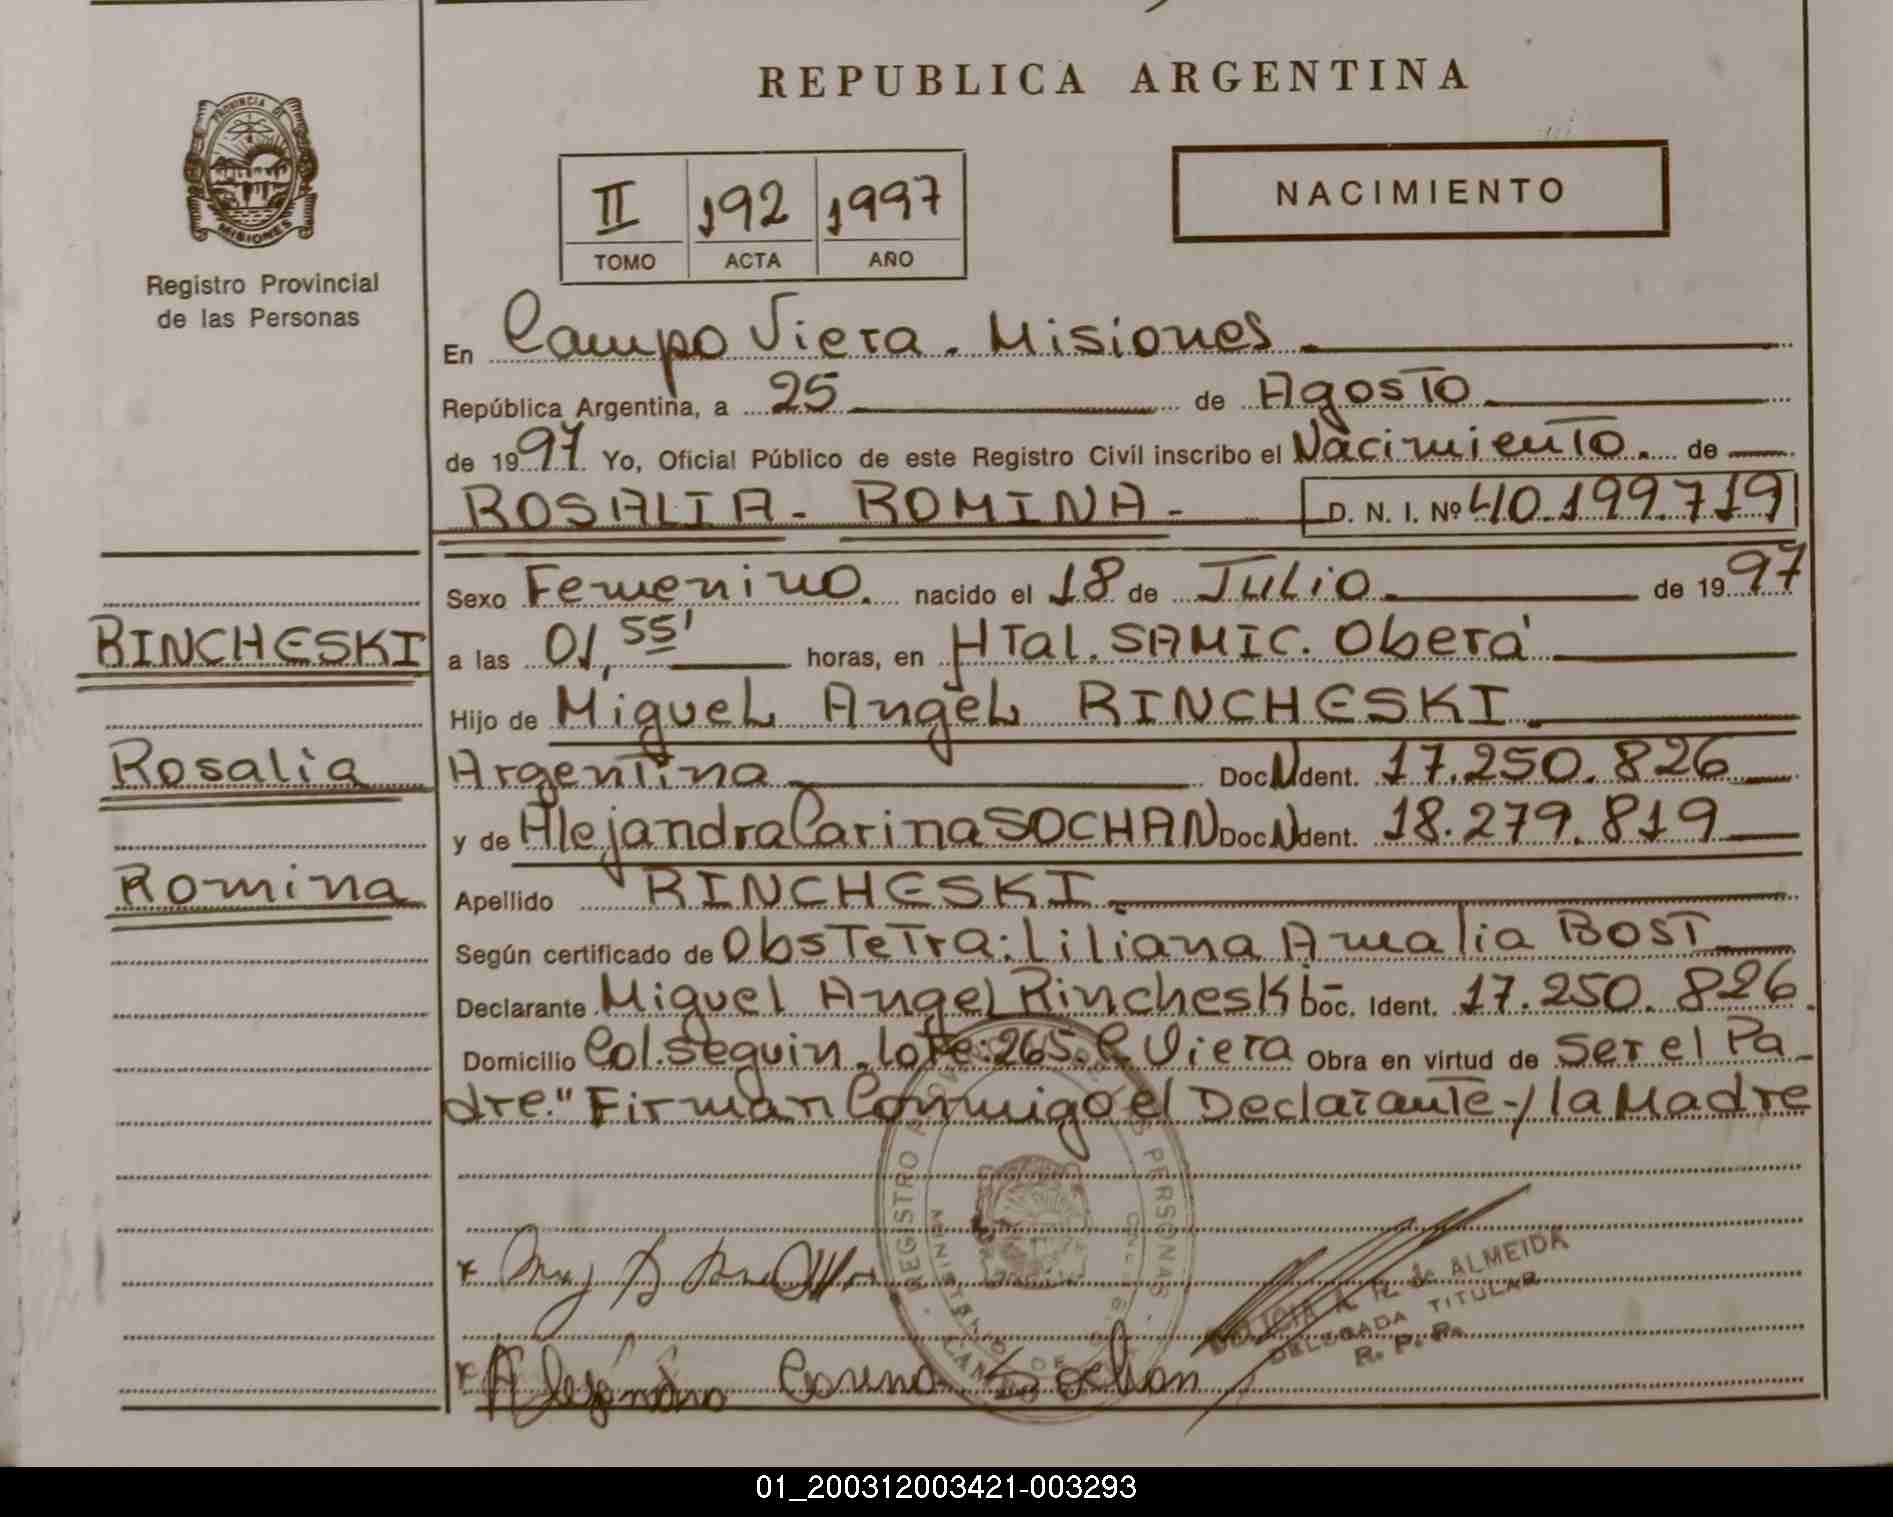 REPUBLICA ARGENTINA
PROVINCIA DE MISIONES
Registro Provincial
de las Personas
NACIMIENTO
II 192 1997
TOMO ACTA AÑO
En Campo Viera. Misiones.
República Argentina, a 25 de Agosto
de 1997. Yo, Oficial Público de este Registro Civil inscribo el Nacimiento. de
ROSALIA - ROMINA - D. N. I. Nº 40.199.719
Sexo Femenino. nacido el 18 de Julio. de 1997
RINCHESKI
a las 01,55' horas, en HTal. SAMIC. Oberá
Hijo de Miguel Angel RINCHESKI.
Rosalia
Argentina Doc. Ident. 17.250.826
y de Alejandra Carina SOCHAN Doc. Ident. 18.279.819
Romina
Apellido RINCHESKI
Según certificado de Obstetra: Liliana Amalia BOST
Declarante Miguel Angel Rincheski- Doc. Ident. 17.250.826.
Domicilio Col. Seguin. Lote: 265. C. Viera Obra en virtud de Ser el Pa-
dre." Firman Conmigo el Declarante y la Madre
REGISTRO PROVINCIAL DE LAS PERSONAS
x
ALMEIDA
DELEGADA TITULAR
R. P. P.
x Alejandra Carina Sochan
01_200312003421-003293